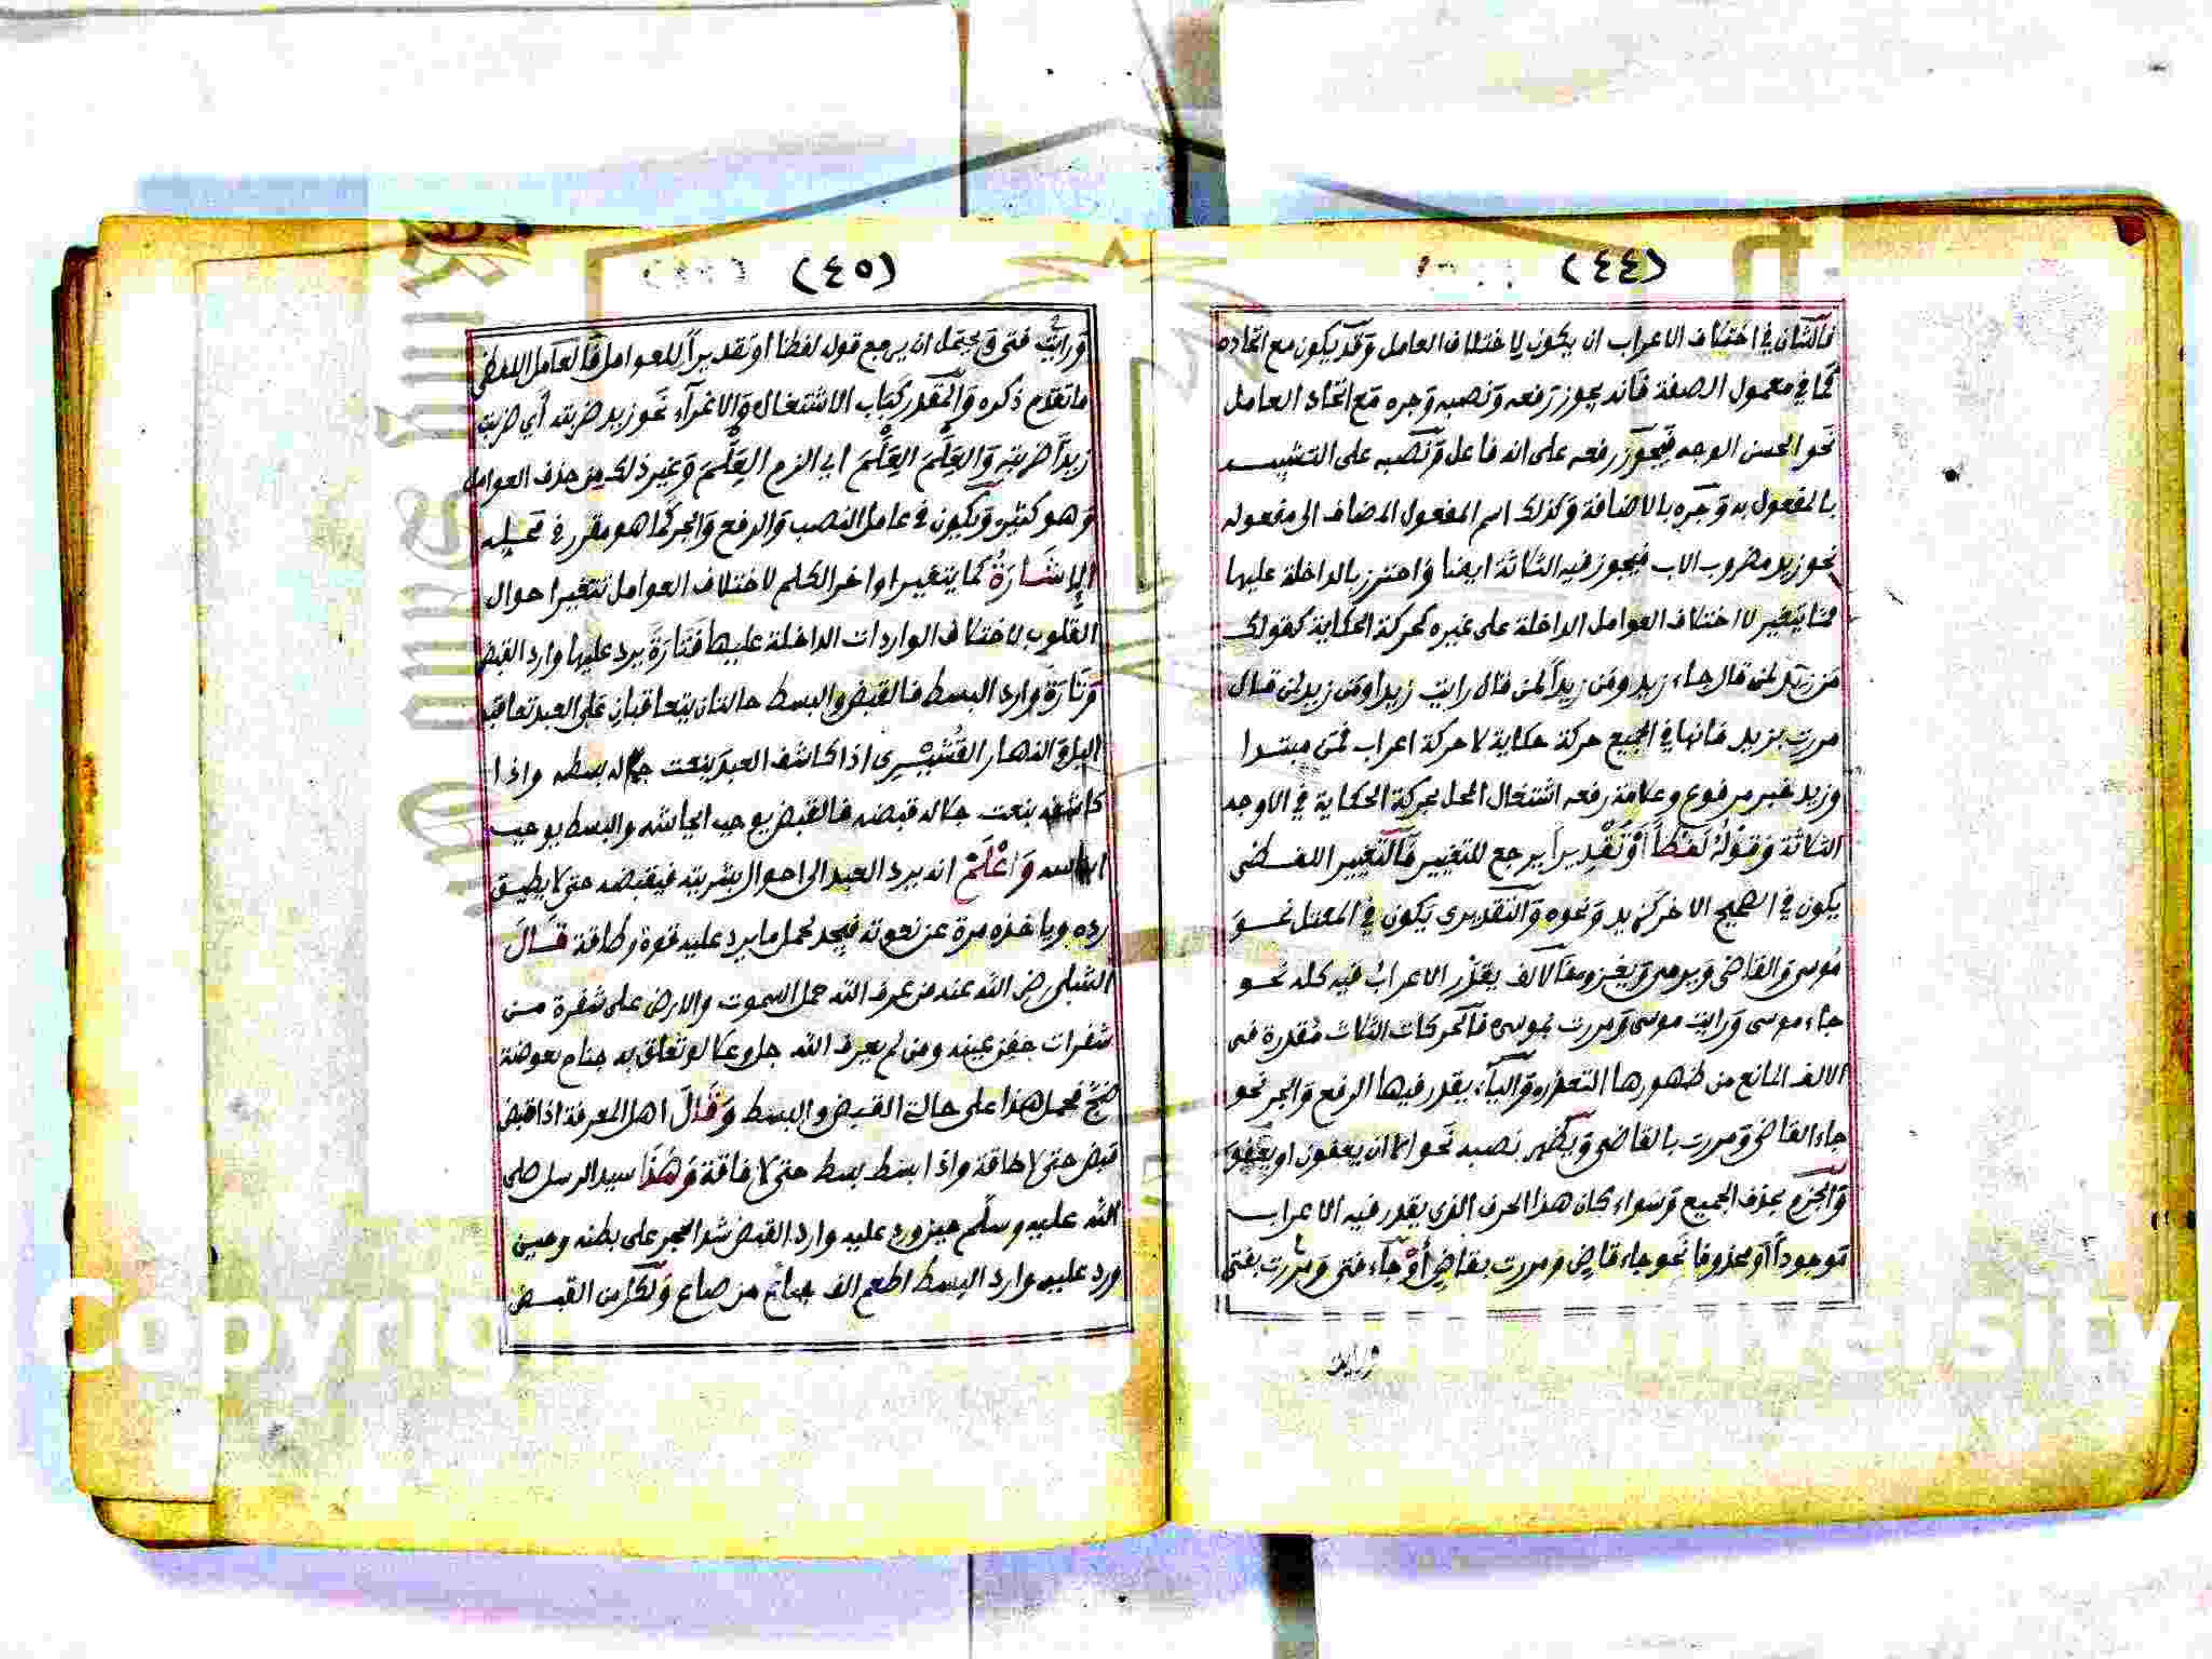 (٤٤)
فالشان في اختلاف الاعراب ان يكون لاختلاف العامل وقد يكون مع اتحاده
كما في معمول الصفة فانه يجوز رفعه ونصبه وجره مع اتحاد العامل
نحو الحسن الوجه فيجوز رفعه على انه فاعل ونصبه على التشبيه
بالمفعول به وجره بالاضافة وكذلك اسم المفعول المضاف الى مفعوله
نحو زيد مضروب الاب فيجوز فيه الثلاثة ايضا واحترز بالداخلة عليها
مما يتغير لاختلاف العوامل الداخلة على غيره كحركة الحكاية كقولك
من زيد لمن قال جاء زيد ومن زيداً لمن قال رايت زيدا ومن زيد لمن قال
مررت بزيد فانها في الجميع حركة حكاية لا حركة اعراب فمن مبتدا
وزيد خبر مرفوع وعلامة رفعه اشتغال المحل بحركة الحكاية في الاوجه
الثلاثة وقوله لفظاً أو تقديراً يرجع للتغيير فالتغيير اللفظي
يكون في الصحيح الاخر كزيد ونحوه والتقديري يكون في المعتل نحو
موسى والقاضي ويرمي ويغزو فالالف يقدر الاعراب فيه كله نحو
جاء موسى ورايت موسى ومررت بموسى فالحركات الثلاث مقدرة في
الالف المانع من ظهورها التعذر والياء يقدر فيها الرفع والجر نحو
جاء القاضي ومررت بالقاضي ويظهر نصبه نحو الا ان يعفون او يعفو
والجزم بحذف الجميع وسواء كان هذا الحرف الذي يقدر فيه الاعراب
موجوداً أو محذوفا نحو جاء قاض ومررت بقاض أو جاء فتى ومررت بفتى
ورايت
(٤٥)
ورايت فتى ويحتمل ان يرجع قوله لفظا او تقديراً للعوامل فالعامل اللفظي
ما تقدم ذكره والمقدر كباب الاشتغال والاغراء نحو زيد ضربته أي ضربت
زيداً ضربته والعِلْمَ العِلْمَ اي الزم العِلْمَ وغير ذلك من حذف العوامل
وهو كثير ويكون في عامل النصب والرفع والجر كما هو مقرر في محله
الإشارة كما يتغير اواخر الكلم لاختلاف العوامل تتغير احوال
القلوب لاختلاف الواردات الداخلة عليها فتارة يرد عليها وارد القبض
وتارة وارد البسط فالقبض والبسط حالتان يتعاقبان على العبد تعاقب
الليل والنهار القشيري اذا كاشف العبد بنعت جماله بسطه واذا
كاشفه بنعت جلاله قبضه فالقبض يوجب ايحاشه والبسط يوجب
ايناسه واعلم انه يرد العبد الى احوال بشريته فيقبضه حتى لا يطيق
ردة وياخذه مرة عن نعوته فيجد لحمل ما يرد عليه قوة وطاقة قال
الشبلي رضي الله عنه من عرف الله حمل السموت والارض على شفرة من
شفرات جفن عينه ومن لم يعرف الله جل وعلا لو تعلق به جناح بعوضة
ضج فحمل هذا على حالة القبض والبسط وقال اهل المعرفة اذا قبض
قبض حتى لا طاقة واذا بسط بسط حتى لا فاقة وهذا سيد الرسل صلى
الله عليه وسلم حين ورد عليه وارد القبض شد الحجر على بطنه وحين
ورد عليه وارد البسط اطعم الف جائع من صاع ولكل من القبض
Copyrig University